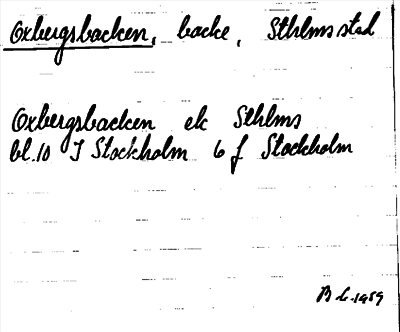 Oxbergsbacken, backe, Sthlms stad
Oxbergsbacken ek Sthlms
bl. 10 J Stockholm 6 f Stockholm
1959